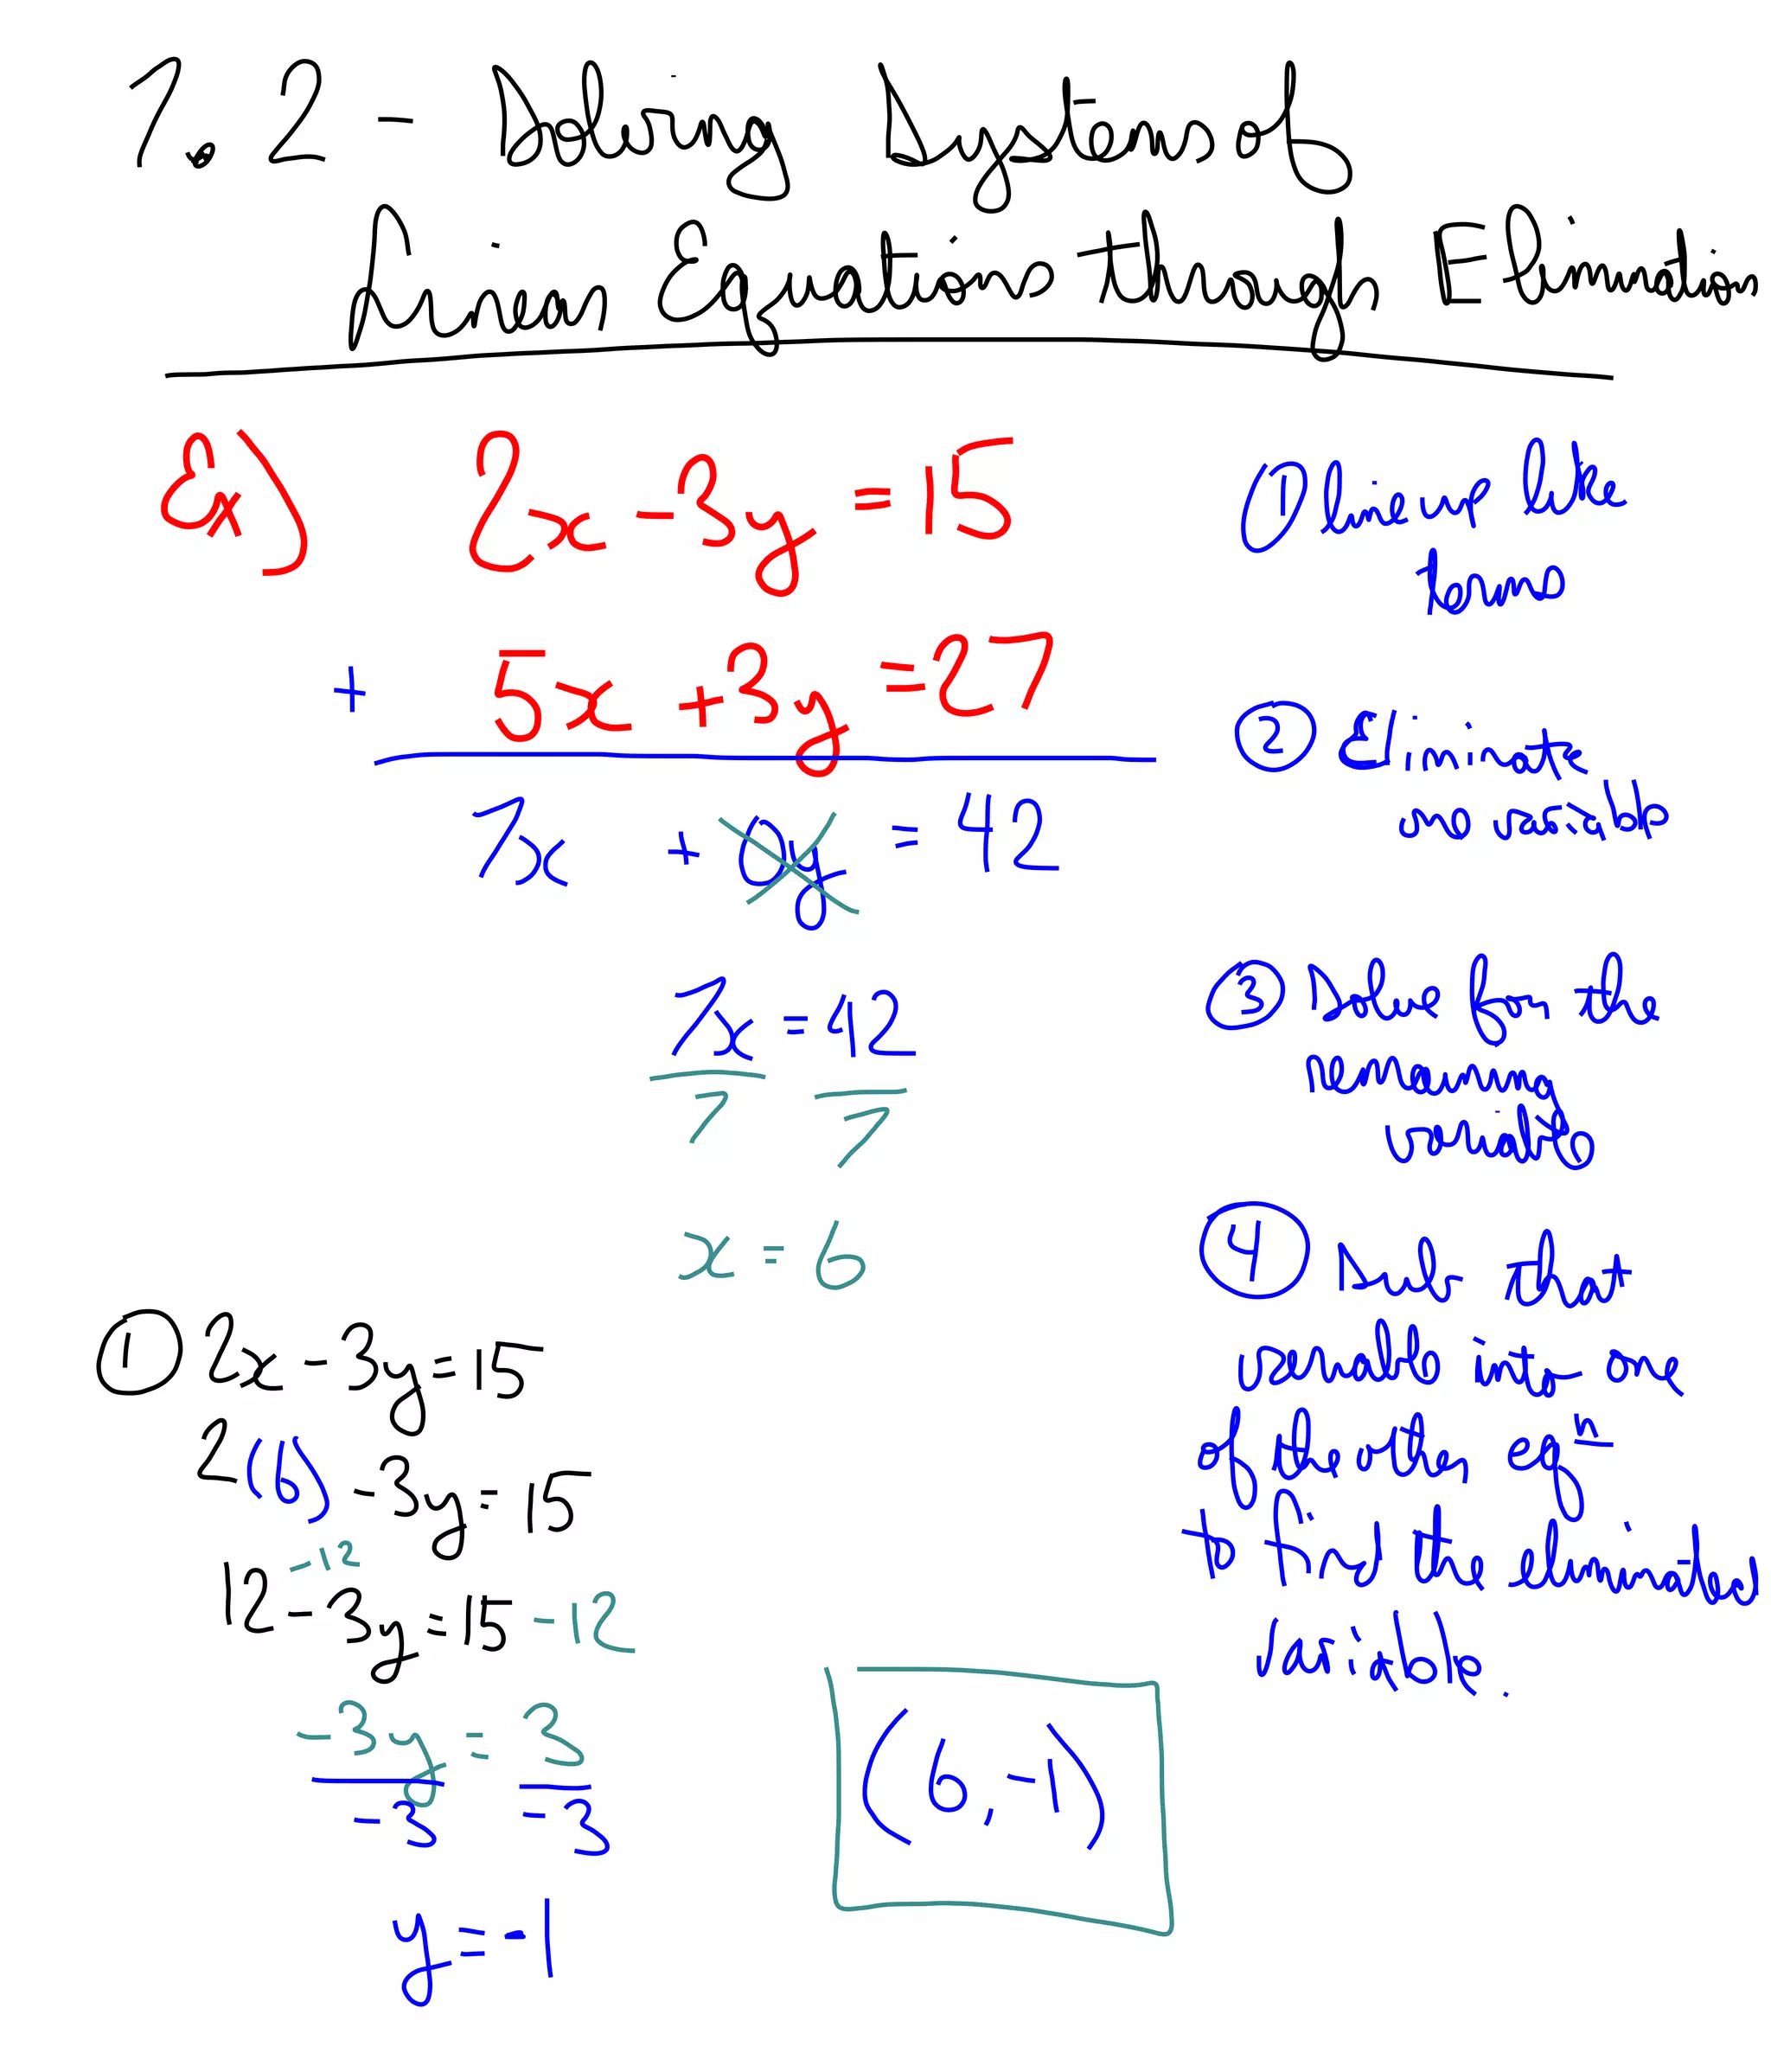 7.2 - Solving Systems of
Linear Equations through Elimination
Ex) 2x - 3y = 15
+ 5x + 3y = 27
7x + 0y = 42
7x = 42
7 7
x = 6
① 2x - 3y = 15
2(6) - 3y = 15
-12
12 - 3y = 15 - 12
-3y = 3
-3 -3
y = -1
(6, -1)
① line up like
terms
② Eliminate
one variable
③ Solve for the
remaining
variable
④ Sub that
variable into one
of the other eqⁿ
to find the eliminated
variable.